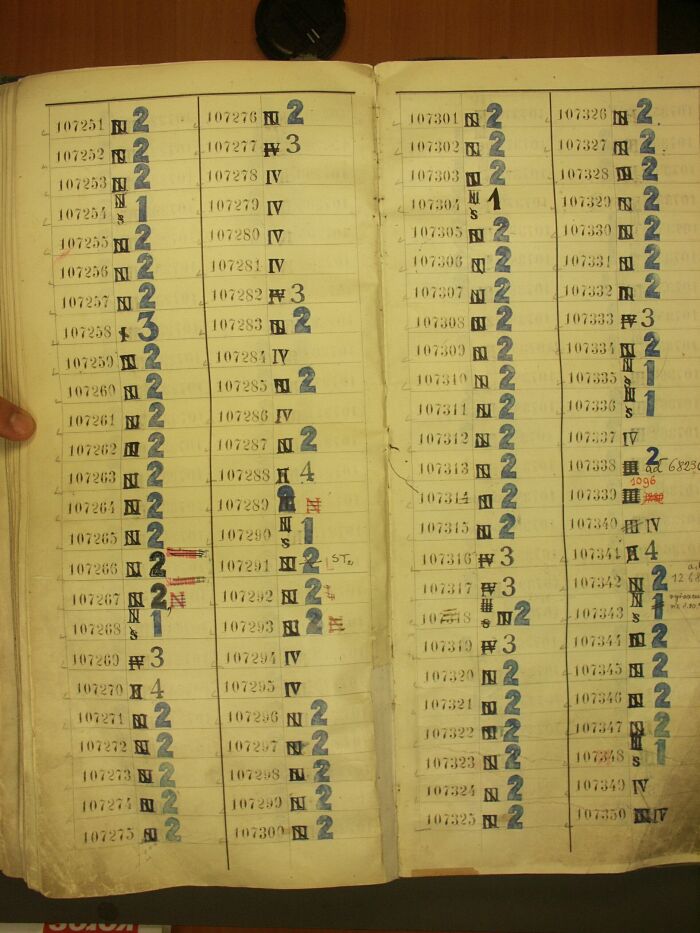 107251 N 2
107252 N 2
107253 N 2
107254 N S 1
107255 N 2
107256 N 2
107257 N 2
107258 3
107259 N 2
107260 N 2
107261 N 2
107262 N 2
107263 N 2
107264 N 2
107265 N 2
107266 N 2
107267 N 2 N
107268 N S 1
107269 IV 3
107270 H 4
107271 N 2
107272 N 2
107273 N 2
107274 N 2
107275 N 2
107276 N 2
107277 IV 3
107278 IV
107279 IV
107280 IV
107281 IV
107282 IV 3
107283 N 2
107284 IV
107285 N 2
107286 IV
107287 N 2
107288 H 4
107289 2 N
107290 N S 1
107291 N 2 ST.
107292 N 2
107293 N 2
107294 IV
107295 IV
107296 N 2
107297 N 2
107298 N 2
107299 N 2
107300 N 2
107301 N 2
107302 N 2
107303 N 2
107304 N S 1
107305 N 2
107306 N 2
107307 N 2
107308 N 2
107309 N 2
107310 N 2
107311 N 2
107312 N 2
107313 N 2
107314 N 2
107315 N 2
107316 IV 3
107317 IV 3
107318 S N 2
107319 IV 3
107320 N 2
107321 N 2
107322 N 2
107323 N 2
107324 N 2
107325 N 2
107326 N 2
107327 N 2
107328 N 2
107329 N 2
107330 N 2
107331 N 2
107332 N 2
107333 IV 3
107334 N 2
107335 N S 1
107336 N S 1
107337 IV
107338 III 2 ad 68236
1096
107339 III
107340 III IV
107341 H 4
107342 N 2
107343 N S 1
107344 N 2
107345 N 2
107346 N 2
107347 N 2
107348 N S 1
107349 IV
107350 IV